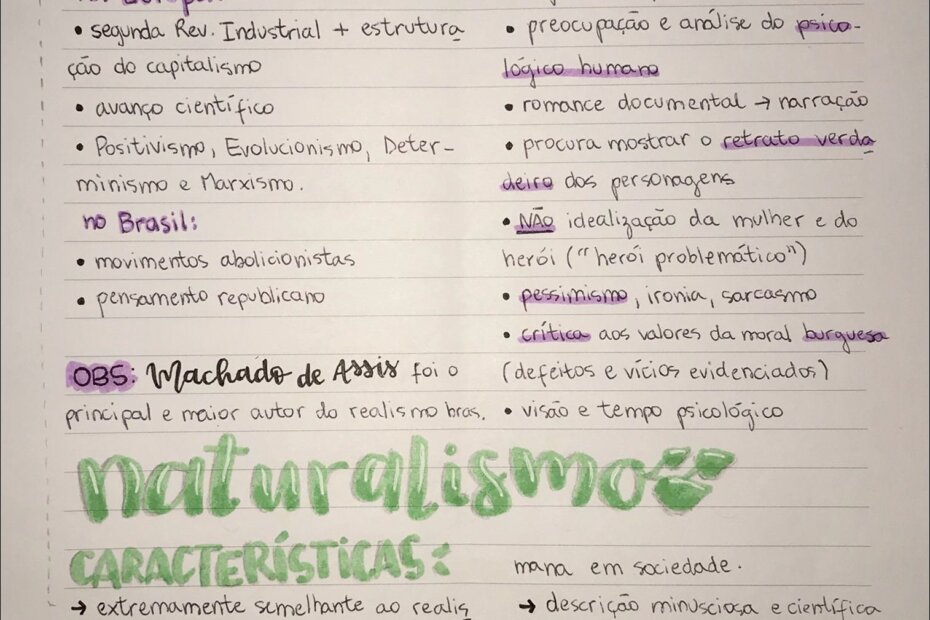 • segunda Rev. Industrial + estrutura
ção do capitalismo
• avanço científico
• Positivismo, Evolucionismo, Deter-
minismo e Marxismo.
no Brasil:
• movimentos abolicionistas
• pensamento republicano
OBS: Machado de Assis foi o
principal e maior autor do realismo bras.
• preocupação e análise do psico-
lógico humano
• romance documental → narração
• procura mostrar o retrato verda
deiro dos personagens
• NÃO idealização da mulher e do
herói ("herói problemático")
• pessimismo, ironia, sarcasmo
• crítica aos valores da moral burguesa
(defeitos e vícios evidenciados)
• visão e tempo psicológico
naturalismo
CARACTERÍSTICAS:
→ extremamente semelhante ao realis
mana em sociedade.
→ descrição minusciosa e científica